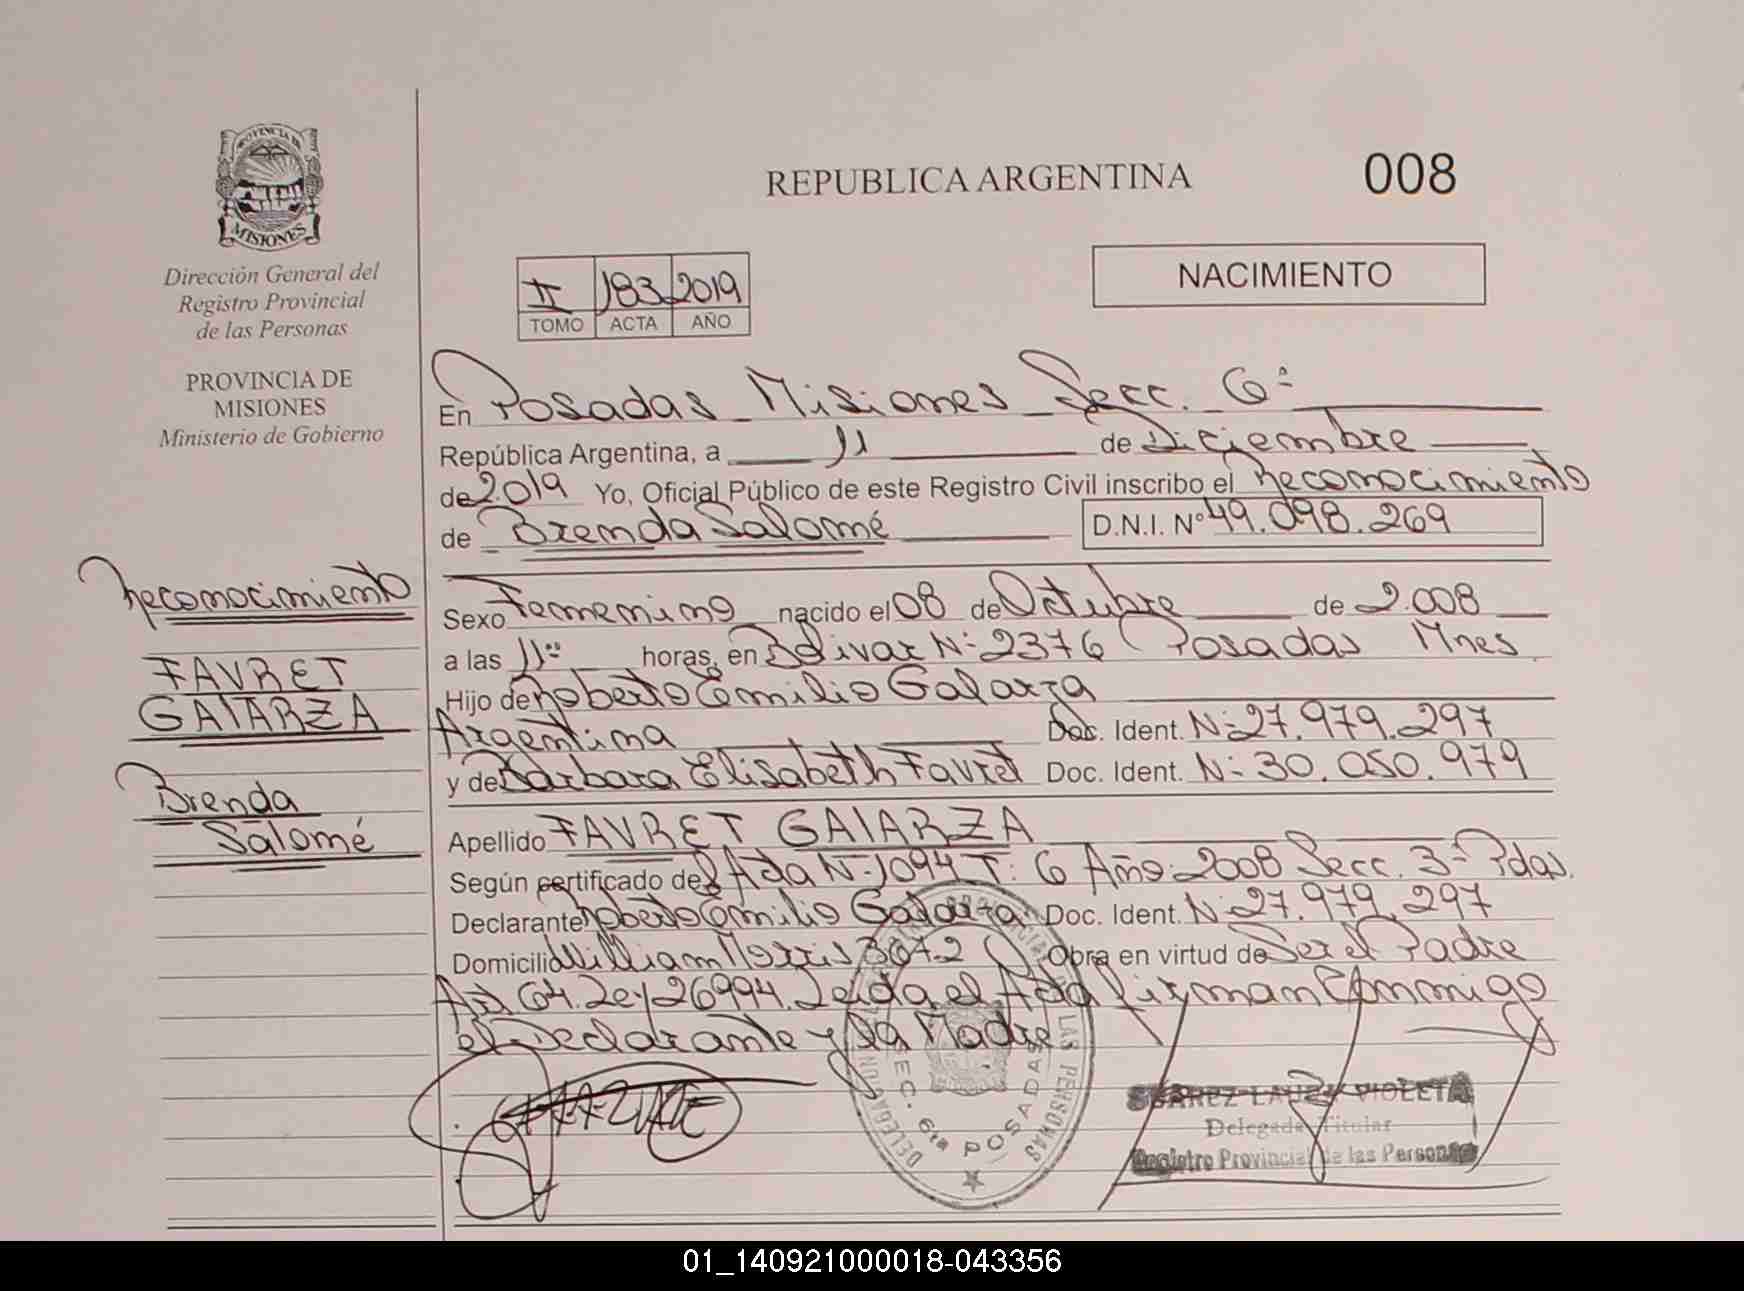 PROVINCIA DE
MISIONES
Dirección General del
Registro Provincial
de las Personas
PROVINCIA DE
MISIONES
Ministerio de Gobierno
REPUBLICA ARGENTINA
008
II 183 2019
TOMO ACTA AÑO
NACIMIENTO
En Posadas Misiones Secc. 6ª
República Argentina, a 11 de Diciembre
de 2019 Yo, Oficial Público de este Registro Civil inscribo el Reconocimiento
de Brenda Salomé D.N.I. Nº 49.098.269
Reconocimiento
FAVRET
GALARZA
Brenda
Salomé
Sexo Femenino nacido el 08 de Octubre de 2.008
a las 11:00 horas, en Bolivar Nº 2376 Posadas Mnes
Hijo de Roberto Emilio Galarza
Argentina Doc. Ident. Nº 27.979.297
y de Barbara Elisabeth Favret Doc. Ident. Nº 30.050.979
Apellido FAVRET GALARZA
Según certificado del Acta Nº 1094 T: 6 Año: 2008 Secc. 3ª Pdas.
Declarante Roberto Emilio Galarza Doc. Ident. Nº 27.979.297
Domicilio William Morris 3672 Obra en virtud de Ser el Padre
Art. 64. Ley 26994. Leida el Acta firman Conmigo
el Declarante y la Madre
DELEGACION
LAS PERSONAS
SEC. 6ta POSADAS
SUAREZ LAURA VIOLETA
Delegada Titular
Registro Provincial de las Personas
01_140921000018-043356